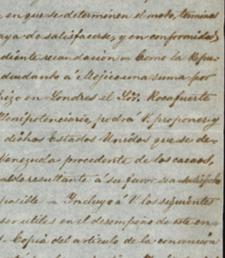 , en que se determinen el modo, terminos
aya de satisfacerse, y en conformidad
diente recaudacion = Como la Repu
deudando á Mejico una suma por
hizo en Londres el Sor. Rocafuerte
Plenipotenciario, podrá V. proponer y
dichos Estados Unidos que se de
Venezuela procedente de los cacaos,
saldo resultante á su favor sea satisfecho
posible = Incluyo á V. los siguientes
ser utiles en el desempeño de este en
Copia del articulo de la convencion